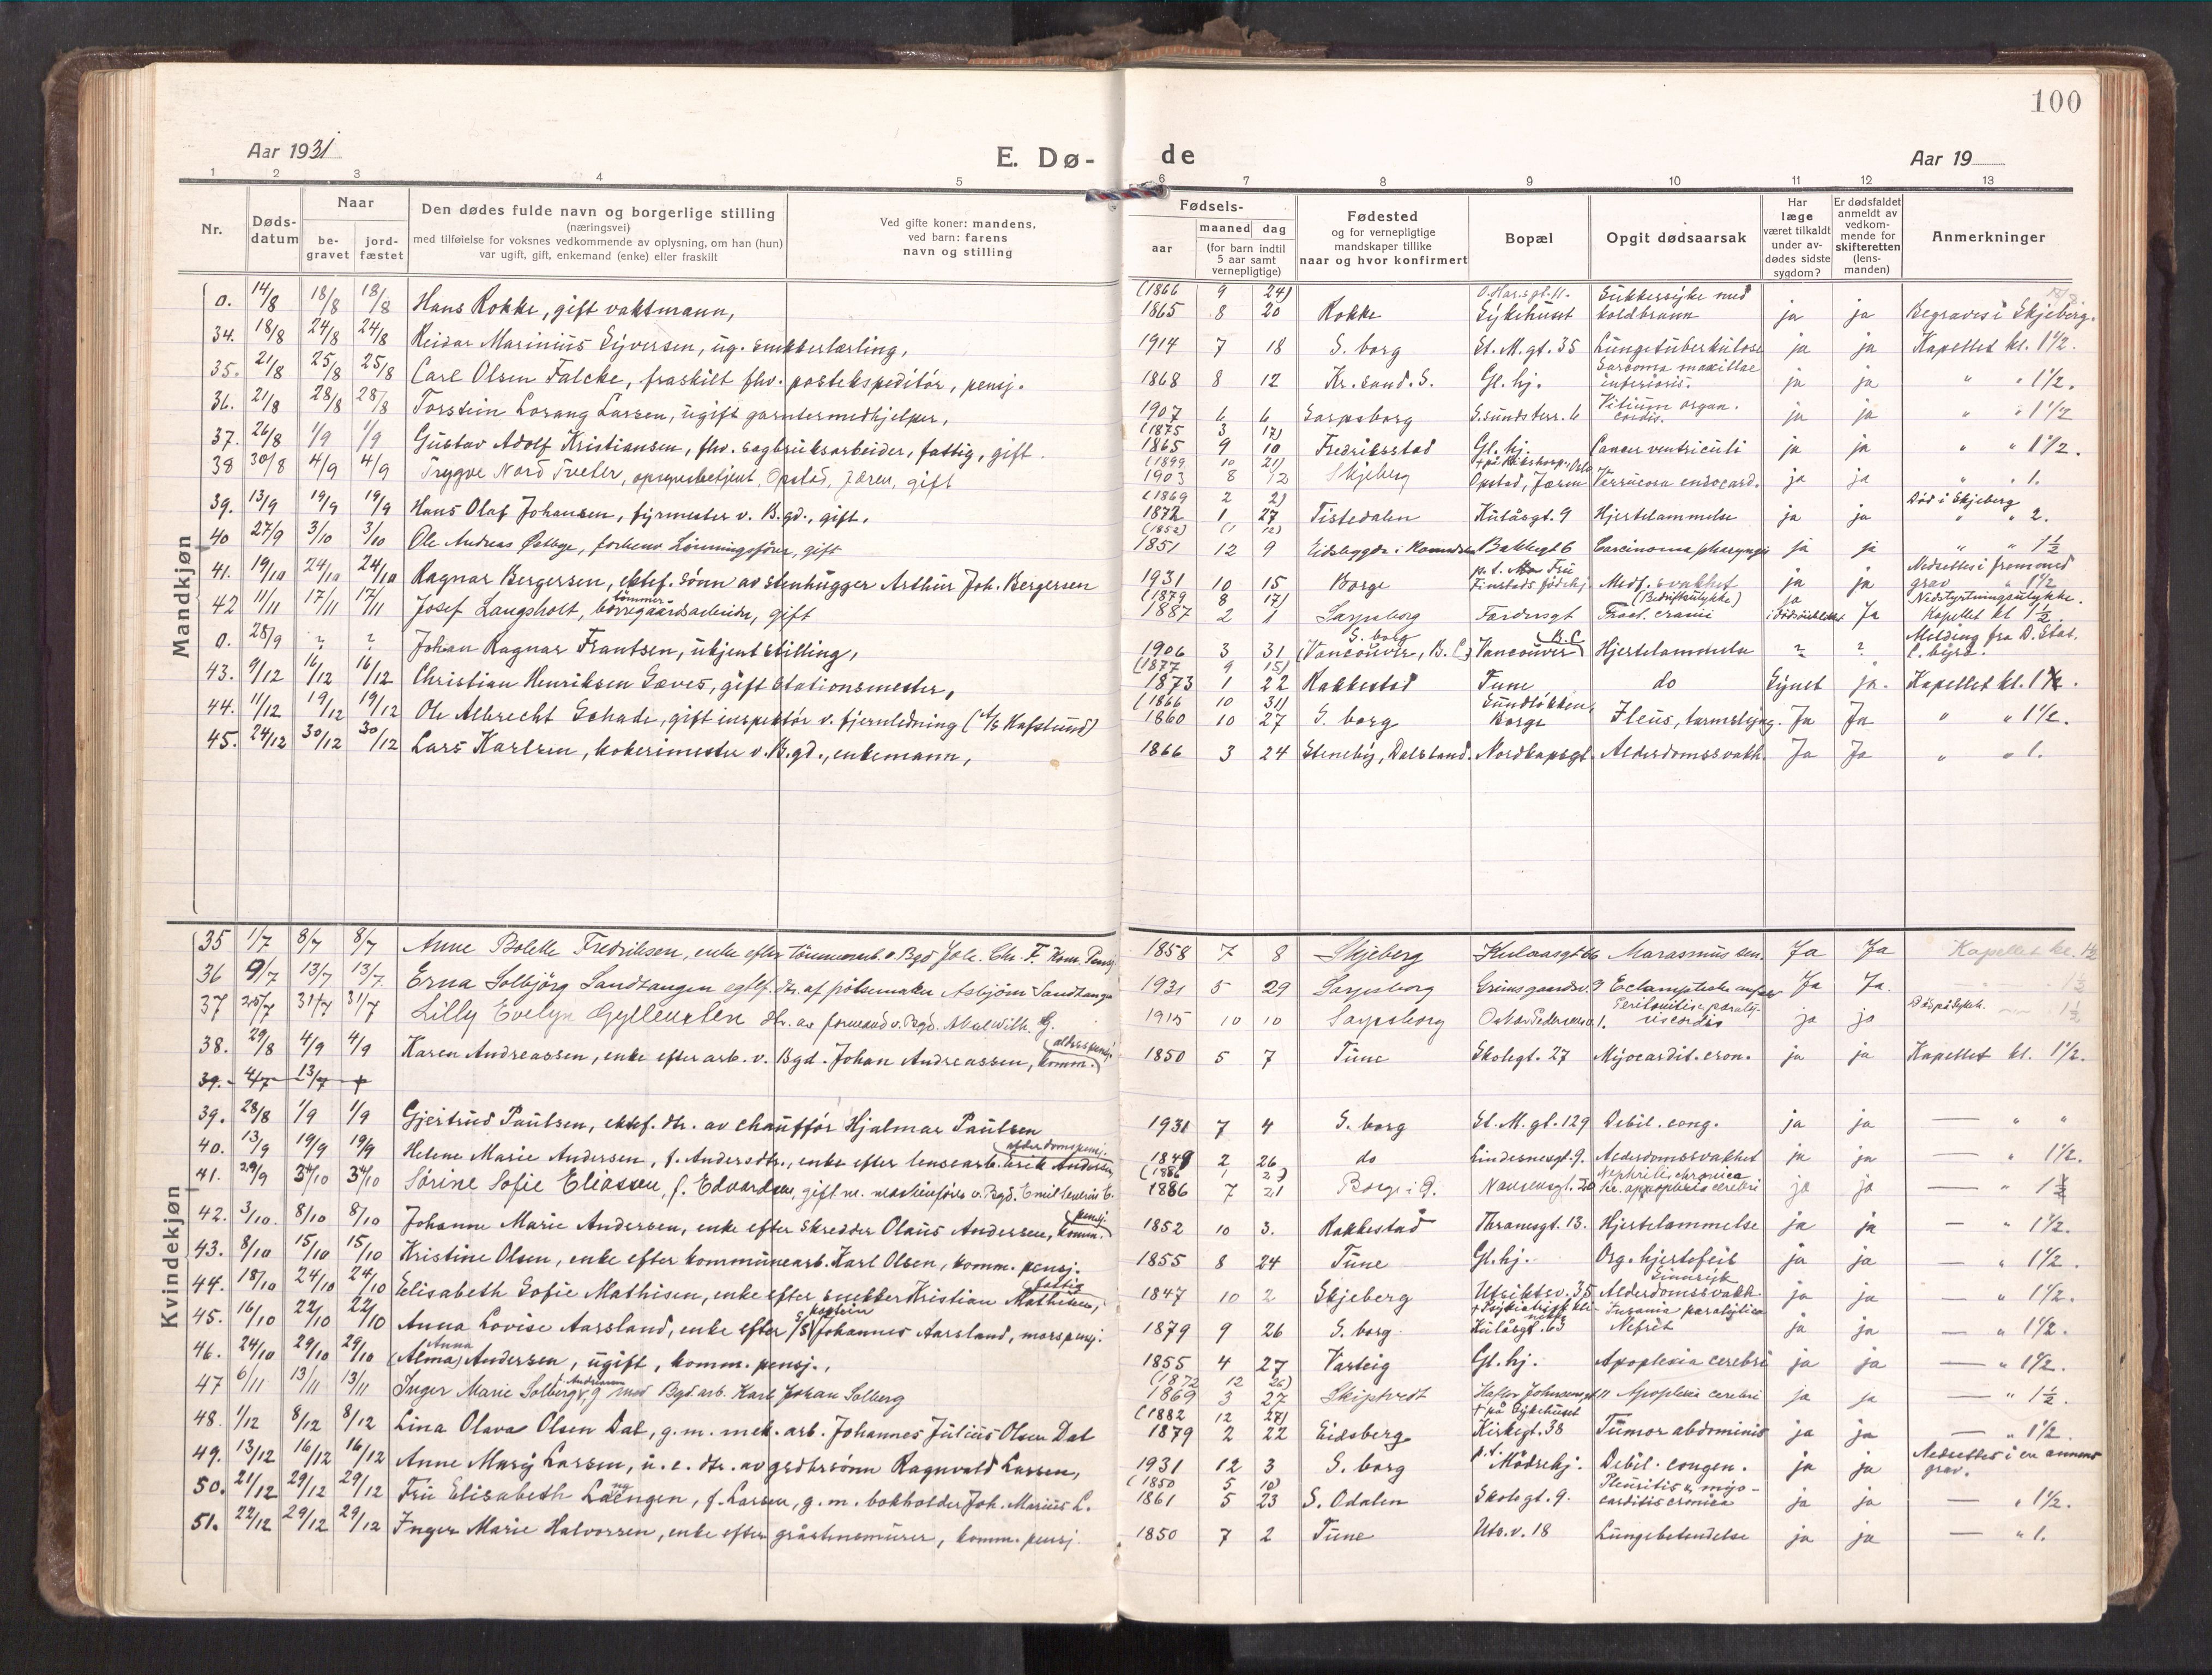 100
Aar 1931 E. Dø- de Aar 19
1 2 3 3 4 5 6 7 8 9 10 11 12 13
Nr.
Døds-
datum
Naar
be-
gravet
jord-
fæstet
Den dødes fulde navn og borgerlige stilling
(næringsvei)
med tilføielse for voksnes vedkommende av oplysning, om han (hun)
var ugift, gift, enkemand (enke) eller fraskilt
Ved gifte koner: mandens,
ved barn: farens
navn og stilling
Fødsels-
aar
maaned dag
(for barn indtil
5 aar samt
vernepligtige)
Fødested
og for vernepligtige
mandskaper tillike
naar og hvor konfirmert
Bopæl
Opgit dødsaarsak
Har
læge
været tilkaldt
under av-
dødes sidste
sygdom?
Er dødsfaldet
anmeldt av
vedkom-
mende for
skifteretten
(lens-
manden)
Anmerkninger
Mandkjøn
0. 14/8 18/8 18/8 Hans Rokke, gift vaktmann, (1866 9 24) 1865 8 20 Rokke Sykehuset Sukkersyke med koldbrann ja ja Begraves i Skjeberg.
34. 18/8 24/8 24/8 Reidar Marinius Syversen, ug. snekkerlærling, 1914 7 18 S. borg St. M. gt. 35 Lungetuberkulose ja ja Kapellet kl. 1 1/2.
35. 21/8 25/8 25/8 Carl Olsen Falcke, fraskilt fhv. postekspeditør, pensj. 1868 8 12 Kr. sand. S. Gl. hj. Sarcoma maxillae inferioris. ja ja " " 1 1/2.
36. 21/8 28/8 28/8 Torstein Lorang Larsen, ugift gartnermedhjelper, 1907 6 6 Sarpsborg S. sundsterr. 6 Vitium organ. cordis. ja ja " " 1 1/2
37. 26/8 1/9 1/9 Gustav Adolf Kristiansen, fhv. sagbruksarbeider, fattig, gift. (1875 3 17) 1865 9 10 Fredriksstad Gl. hj. Cancer ventriculi ja ja " " 1 1/2.
38 30/8 4/9 4/9 Trygve Nord Tveter, opsynsbetjent, Opstad, Jæren, gift (1899 10 21) 1903 8 12 Skjeberg + på Rikshosp. Oslo Opstad, Jæren Verrucosa endocard. ja ja " " 1.
39. 13/9 19/9 19/9 Hans Olaf Johansen, fyrmester v. B.gd., gift, (1869 2 2) 1872 1 27 Tistedalen Kulåsgt. 9 Hjertelammelse ja ja Død i Skjeberg " " 2.
40 27/9 3/10 3/10 Ole Andreas Østbye, forhenv Lønningsfører, gift (1852) (1 12) 1851 12 9 Eidsbygda i Romsdalen Bakkegt 6 Carcinoma pharyngis ja ja " " 1 1/2
41. 19/10 24/10 24/10 Ragnar Bergersen, ektef. sønn av stenhugger Arthur Joh. Bergersen 1931 10 15 Borge p. t. Fru Finstads fødehj. Medf. svakhet ja ja Nedsettes i fremmed grav " 1 1/2
42 11/11 17/11 17/11 Josef Langsholt, tømmer borregaardsarbeider, gift (1879 8 17) 1887 2 1 Sarpsborg Færdersgt (Bedriftsulykke) Fract. cranii ja i dødsøieblikket Ja Nedstyrtningsulykke. Kapellet kl 1 1/2
0. 28/9 ? ? Johan Ragnar Frantsen, ukjent stilling, 1906 3 31 S. borg (Vancouver, B. C.) Vancouver B. C. Hjertelammelse ? ? Melding fra D. Stat. C. byrå.
43. 9/12 16/12 16/12 Christian Henriksen Gaves, gift stationsmester, (1877 9 15) 1873 1 22 Rakkestad Tune do Synet ja. Kapellet kl. 1 1/2.
44. 11/12 19/12 19/12 Ole Albrecht Schade, gift inspektør v. fjernledning (A/S Hafslund) (1866 10 31) 1860 10 27 S. borg Sundløkken, Borge Ileus, tarmslyng. Ja Ja " " 1 1/2.
45. 24/12 30/12 30/12 Lars Karlsen, kokerimester v. B.gd., enkemann, 1866 3 24 Steneby, Dalsland. Nordkapsgt. Alderdomssvakh. Ja Ja " " 1.
Kvindekjøn
35 1/7 8/7 8/7 Anne Bolette Fredriksen, enke efter tømmerarb. v. Bgd Joh. Chr. F. Kom. Pensj 1858 7 8 Skjeberg Kulaasgt 66 Marasmus sen. Ja Ja Kapellet kl. 1 1/2
36 9/7 13/7 13/7 Erna Solbjørg Sandtangen egtef. dtr. af pølsemaker Asbjørn Sandtangen 1931 5 29 Sarpsborg Grimsgaardsv. 9 Eclamptiske anfald Ja Ja. 1 1/2
37 25/7 31/7 31/7 Lilly Evelyn Gyllensten dtr. av formand v. Bgd. Axel Wilh. G. 1915 10 10 Sarpsborg Oskar Pedersensv. 1. Peritonitis, paralysis cordis ja ja 1 1/2
38. 29/8 4/9 4/9 Karen Andreassen, enke efter arb. v. Bgd. Johan Andreassen, komm. alderspensj. 1850 5 7 Tune Skolegt. 27 Myocardit. cron. ja ja Kapellet kl. 1 1/2.
39. 4/7 13/7 +
39. 28/8 1/9 1/9 Gjertrud Paulsen, ektef. dtr. av chauffør Hjalmar Paulsen 1931 7 4 S. borg St. M. gt. 129 Debil. cong. ja ja — " "
40. 13/9 19/9 19/9 Helene Marie Andersen, f. Andersdtr., enke efter lensearb. Erik Andersen alderdomspensj. 1849 2 26 do Lindesnesgt. 9. Alderdomssvakhet ja ja — " 1 1/2.
41. 29/9 3/10 3/10 Sørine Sofie Eliassen, f. Edvardsen, gift m. maskinfører v. Bgd. Emil Severin E. (1886 1 2) 1886 7 21 Borge i Ø. Nansensgt. 20 Nephritis chronica hc. apoplexia cerebri ja ja — " 1 1/2
42. 3/10. 8/10 8/10 Johanne Marie Andersen, enke efter skredder Olaus Andersen, komm. pensj. 1852 10 3. Rakkestad Thranesgt. 13. Hjertelammelse ja ja — " 1 1/2.
43. 8/10 15/10 15/10 Kristine Olsen, enke efter kommunearb. Karl Olsen, komm. pensj. 1855 8 24 Tune Gl. hj. Org. hjertefeil ja ja — " 1 1/2.
44. 18/10 24/10 24/10 Elisabeth Sofie Mathisen, enke efter snekker Kristian Mathisen, fattig 1847 10 2 Skjeberg Utsiktsv. 35 Alderdomssvakh. Sinnsyk ja ja — " 1 1/2.
45. 16/10 22/10 22/10 Anna Lovise Aarsland, enke efter kaptein Johannes Aarsland, morspensj. 1879 9 26 S. borg. + Psykiatrisk klinikk Kulåsgt. 63 Insania paralytica Nefrit ja ja — " 1 1/2.
46. 24/10 29/10 29/10 Anna (Alma) Andersen, ugift, komm. pensj., 1855 4 27 Varteig Gl. hj. Apoplexia cerebri ja ja — " 1 1/2.
47 6/11 13/11 13/11 Inger Marie Solberg f. Andresen, g med Bgd arb. Karl Johan Solberg (1872 12 26) 1869 3 27 Skiptvedt Haftor Johnsensgt 11 Apoplexia cerebri ja ja — " 1 1/2.
48. 1/12 8/12 8/12 Lina Olava Olsen Dal, g. m. mek. arb. Johannes Julius Olsen Dal (1882 12 27) 1879 2 22 Eidsberg + på Sykehuset Kirkegt. 38 Tumor abdominis ja ja — " 1 1/2
49. 13/12 16/12 16/12 Anne Mary Larsen, u. e. dtr. av gårdbrsønn Ragnvald Larsen, 1931 12 3 S. borg p. t. Mødrehj. Debil. congen. ja ja Nedsettes i en annens grav.
50. 21/12 29/12 29/12 Fru Elisabeth Laengen, f. Larsen, g. m. bokholder Joh. Marius L. (1850 5 10) 1861 5 23 S. Odalen Skolegt. 9. Pleuritis & myocarditis cronica ja ja — " 1 1/2.
51. 22/12 29/12 29/12 Inger Marie Halvorsen, enke efter gråstensmurer, komm. pensj. 1850 7 2 Tune Uts. v. 18 Lungebetendelse ja ja — " 1.